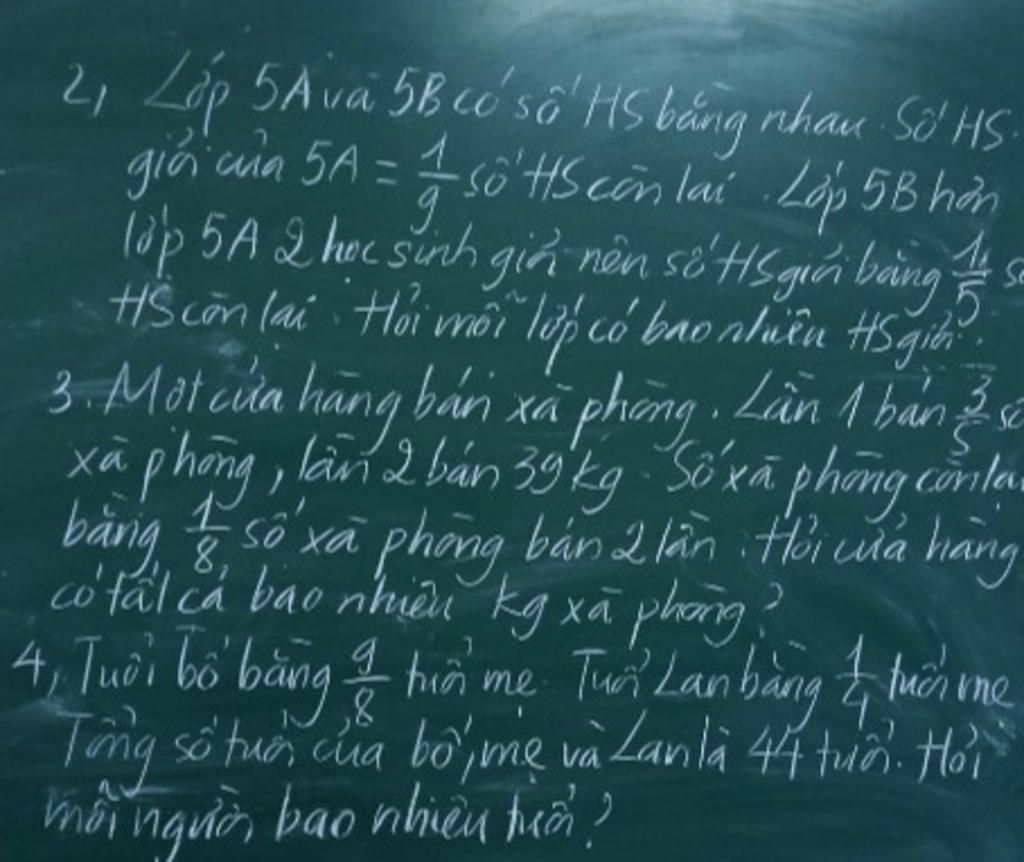 2, Lớp 5A và 5B có số HS bằng nhau. Số HS
giỏi của 5A = 1/9 số HS còn lại. Lớp 5B hơn
lớp 5A 2 học sinh giỏi nên số HS giỏi bằng 1/5 số
HS còn lại. Hỏi mỗi lớp có bao nhiêu HS giỏi.
3. Một cửa hàng bán xà phòng. Lần 1 bán 3/5 số
xà phòng, lần 2 bán 39 kg. Số xà phòng còn lại
bằng 1/8 số xà phòng bán 2 lần. Hỏi cửa hàng
có tất cả bao nhiêu kg xà phòng?
4, Tuổi bố bằng 9/8 tuổi mẹ. Tuổi Lan bằng 1/4 tuổi mẹ
Tổng số tuổi của bố, mẹ và Lan là 44 tuổi. Hỏi
mỗi người bao nhiêu tuổi?